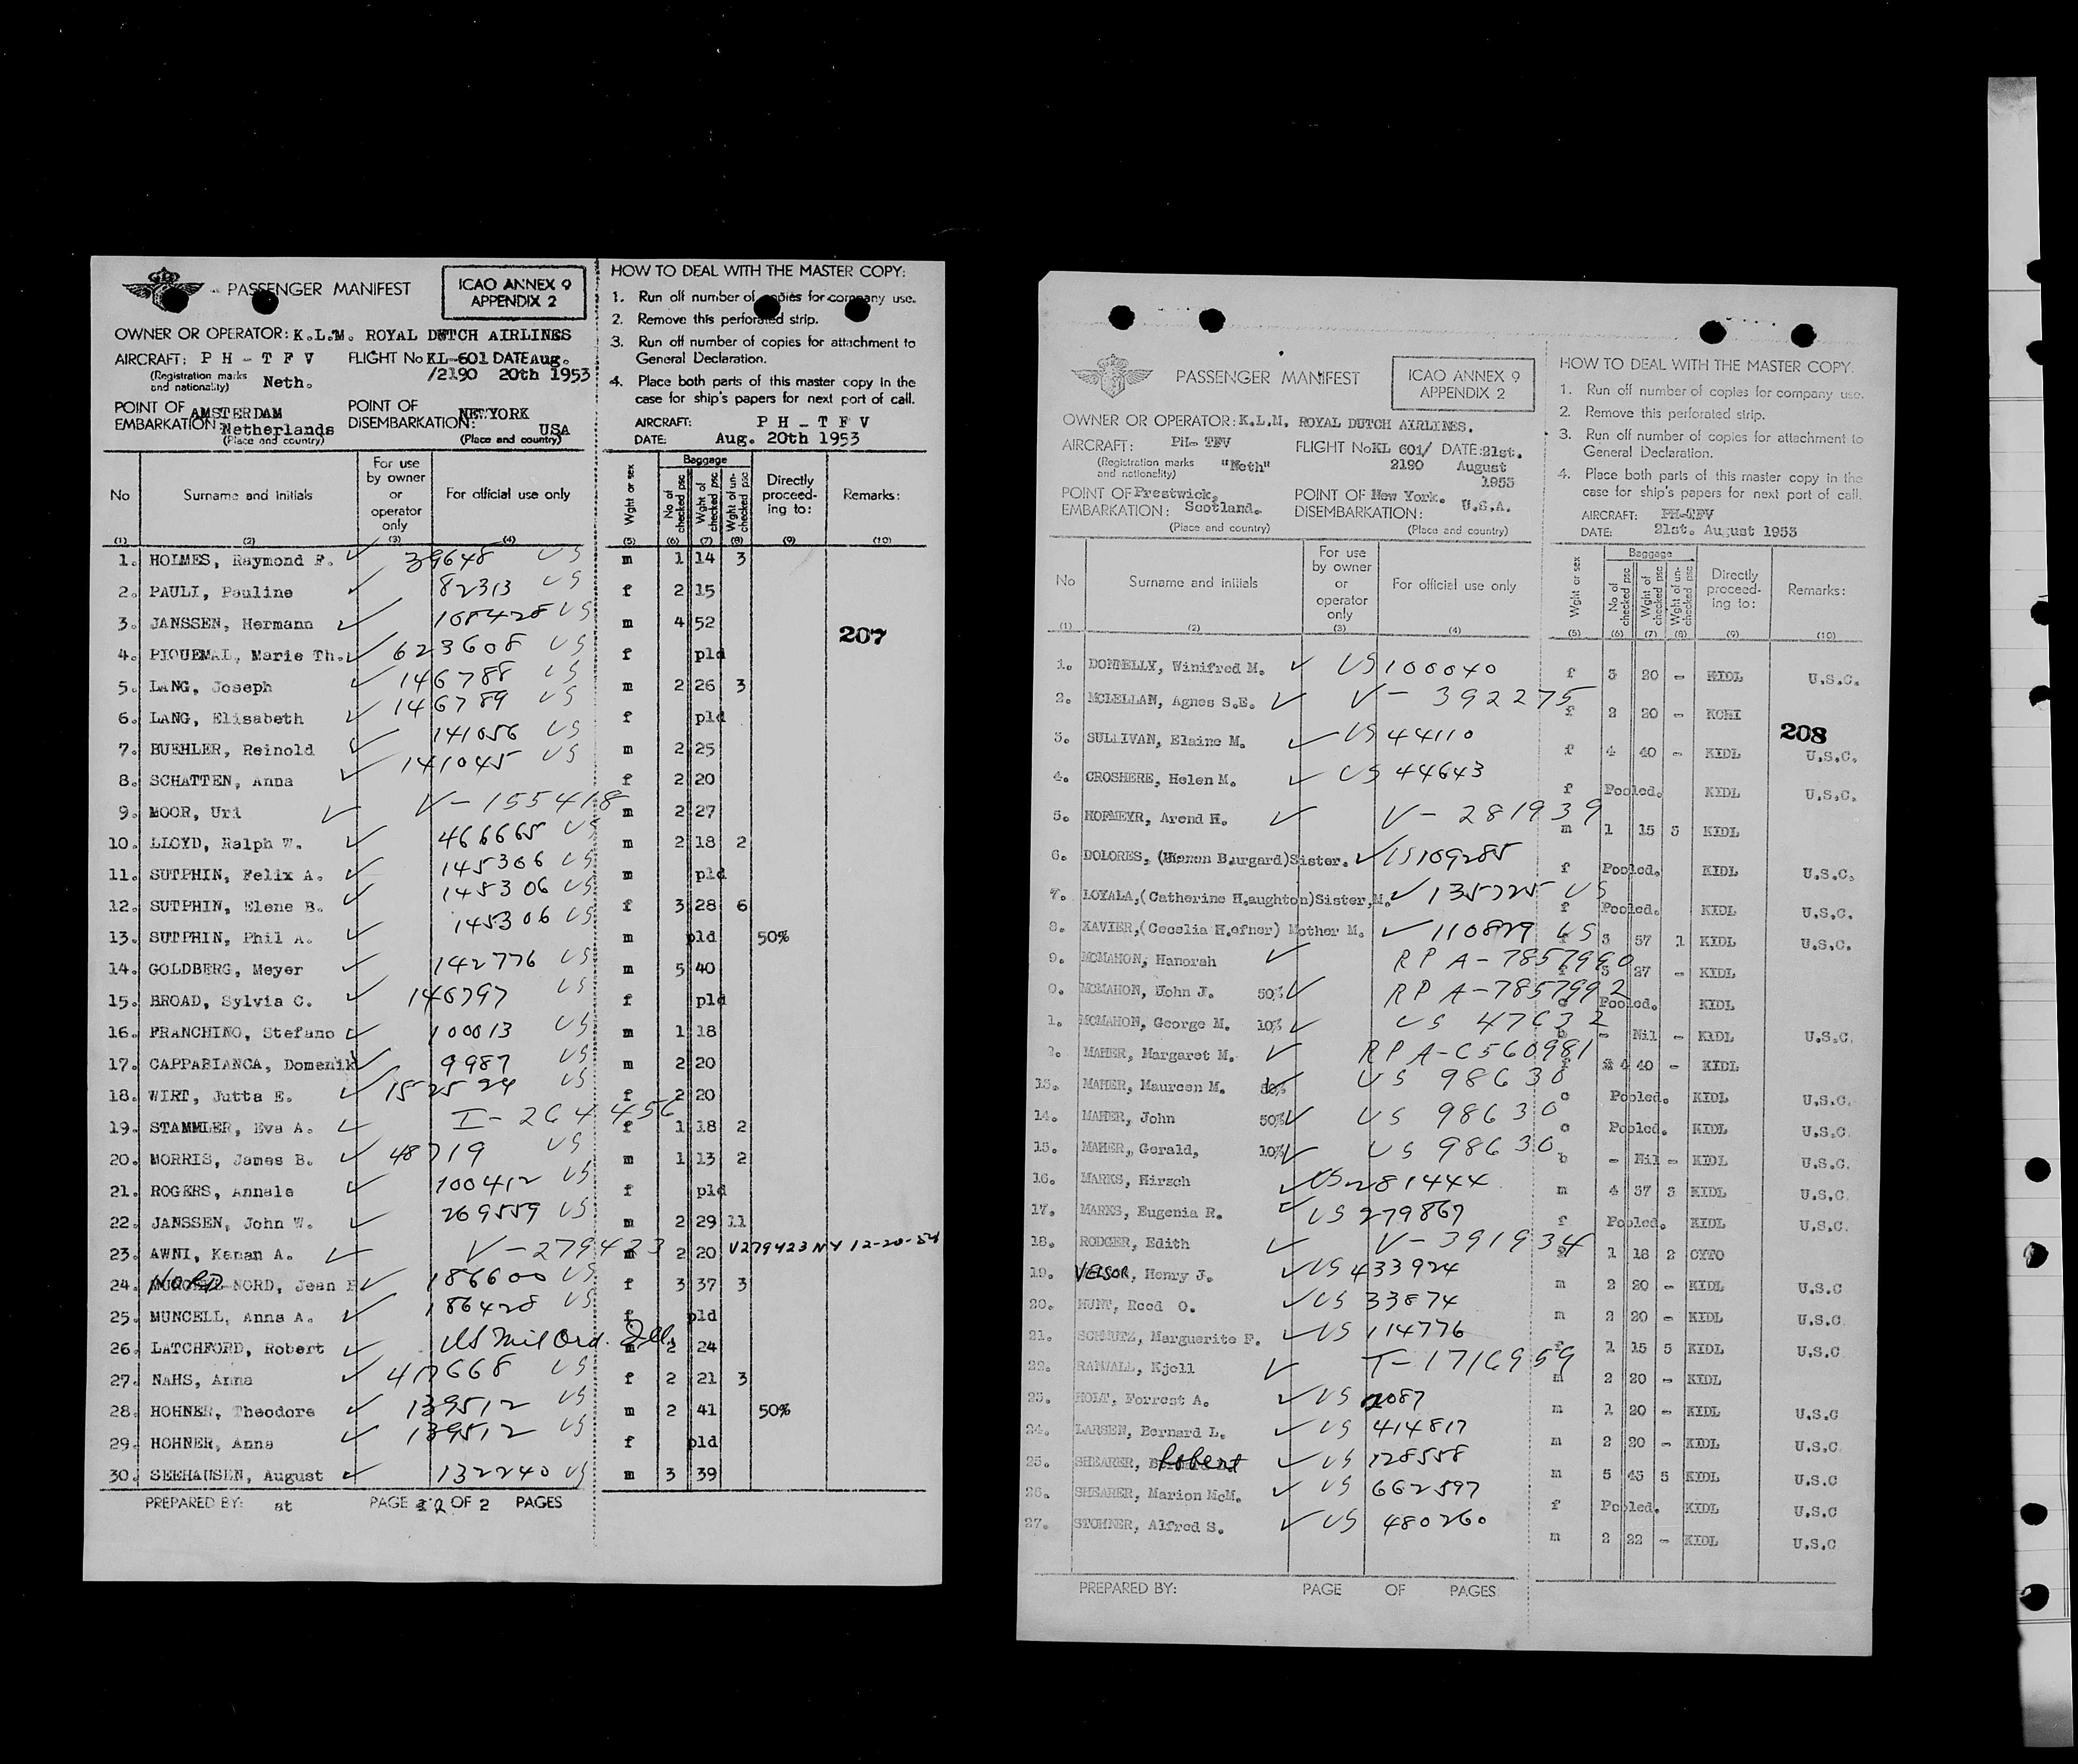 PASSENGER MANIFEST
ICAO ANNEX 9
APPENDIX 2
OWNER OR OPERATOR: K.L.M. ROYAL DUTCH AIRLINES
AIRCRAFT: P H - T F V FLIGHT No KL-601 DATE Aug.
(Registration marks and nationality) Neth. /2190 20th 1953
POINT OF EMBARKATION: AMSTERDAM Netherlands
(Place and country)
POINT OF DISEMBARKATION: NEWYORK USA
(Place and country)
HOW TO DEAL WITH THE MASTER COPY:
1. Run off number of copies for company use.
2. Remove this perforated strip.
3. Run off number of copies for attachment to
General Declaration.
4. Place both parts of this master copy in the
case for ship's papers for next port of call.
AIRCRAFT: P H - T F V
DATE: Aug. 20th 1953
No Surname and initials For use by owner or operator only For official use only Wght or sex Baggage No of checked psc Wght of checked psc Wght of un-checked psc Directly proceed-ing to: Remarks:
(1) (2) (3) (4) (5) (6) (7) (8) (9) (10)
1. HOLMES, Raymond F. ✓ 39648 US m 1 14 3
2. PAULI, Pauline ✓ 82313 US f 2 15
3. JANSSEN, Hermann ✓ 168428 US m 4 52
207
4. PIQUEMAL, Marie Th. ✓ 623608 US f pld
5. LANG, Joseph ✓ 146788 US m 2 26 3
6. LANG, Elisabeth ✓ 146789 US f pld
7. BUEHLER, Reinold ✓ 141056 US m 2 25
8. SCHATTEN, Anna ✓ 141045 US f 2 20
9. MOOR, Uri ✓ V-155418 m 2 27
10. LLOYD, Ralph W. ✓ 466665 US m 2 18 2
11. SUTPHIN, Felix A. ✓ 145306 US m pld
12. SUTPHIN, Elene B. ✓ 145306 US f 3 28 6
13. SUTPHIN, Phil A. ✓ 145306 US m pld 50%
14. GOLDBERG, Meyer ✓ 142776 US m 5 40
15. BROAD, Sylvia C. ✓ 146797 US f pld
16. FRANCHINO, Stefano ✓ 100013 US m 1 18
17. CAPPABIANCA, Domenik ✓ 9987 US m 2 20
18. WIRT, Jutta E. ✓ 152524 US f 2 20
19. STAMMLER, Eva A. ✓ I-264456 f 1 18 2
20. MORRIS, James B. ✓ 48719 US m 1 13 2
21. ROGERS, Annale ✓ 100412 US f pld
22. JANSSEN, John W. ✓ 269559 US m 2 29 11
23. AWNI, Kanan A. ✓ V-279423 m 2 20 V279423 NY 12-20-54
24. NORD NORD, Jean ✓ 186600 US f 3 37 3
25. MUNCELL, Anna A. ✓ 186428 US f pld
26. LATCHFORD, Robert ✓ US Mil Ord. m 2 24
27. NAHS, Anna ✓ 417668 US f 2 21 3
28. HOHNER, Theodore ✓ 139512 US m 2 41 50%
29. HOHNER, Anna ✓ 139512 US f pld
30. SEEHAUSEN, August ✓ 132240 US m 3 39
PREPARED BY: at PAGE 2 OF 2 PAGES
PASSENGER MANIFEST
ICAO ANNEX 9
APPENDIX 2
OWNER OR OPERATOR: K.L.M. ROYAL DUTCH AIRLINES.
AIRCRAFT: PH- TFV FLIGHT No KL 601/ DATE: 21st.
(Registration marks and nationality) "Neth" 2190 August 1953
POINT OF EMBARKATION: Prestwick, Scotland.
(Place and country)
POINT OF DISEMBARKATION: New York. U.S.A.
(Place and country)
HOW TO DEAL WITH THE MASTER COPY.
1. Run off number of copies for company use.
2. Remove this perforated strip.
3. Run off number of copies for attachment to
General Declaration.
4. Place both parts of this master copy in the
case for ship's papers for next port of call.
AIRCRAFT: PH-TFV
DATE: 21st. August 1953
No Surname and initials For use by owner or operator only For official use only Wght or sex Baggage No of checked psc Wght of checked psc Wght of un-checked psc Directly proceed-ing to: Remarks:
(1) (2) (3) (4) (5) (6) (7) (8) (9) (10)
1. DONNELLY, Winifred M. ✓ US 100040 f 3 20 - KIDL U.S.C.
2. MCLELLAN, Agnes S.E. ✓ V-392275 f 2 20 - KCHI
208
3. SULLIVAN, Elaine M. ✓ US 44110 f 4 40 - KIDL U.S.C.
4. CROSHERE, Helen M. ✓ US 44643 f Pooled. KIDL U.S.C.
5. HOFMEYR, Arend H. ✓ V-281939 m 1 15 5 KIDL
6. DOLORES, (Manon Baurgard)Sister. ✓ US 109285 f Pooled. KIDL U.S.C.
7. LOYALA,(Catherine H.aughton)Sister,M. ✓ 135725 US f Pooled. KIDL U.S.C.
8. XAVIER,(Cecelia H.afner) Mother M. ✓ 110829 US f 3 57 1 KIDL U.S.C.
9. MCMAHON, Hanorah ✓ RP A-7857990 f 3 27 - KIDL
0. MCMAHON, John J. 50% ✓ RP A-7857992 c Pooled. KIDL
1. MCMAHON, George M. 10% ✓ US 47632 b - Nil - KIDL U.S.C.
2. MAHER, Margaret M. ✓ RP A-C560981 f 4 40 - KIDL
13. MAHER, Maureen M. 50% ✓ US 98630 c Pooled. KIDL U.S.C.
14. MAHER, John 50% ✓ US 98630 c Pooled. KIDL U.S.C.
15. MAHER, Gerald, 10% ✓ US 98630 b - Nil - KIDL U.S.C.
16. MARKS, Hirsch ✓ US 281444 m 4 57 3 KIDL U.S.C.
17. MARKS, Eugenia R. ✓ US 279867 f Pooled. KIDL U.S.C.
18. RODGER, Edith ✓ V-391934 f 1 18 2 CYTO
19. VELSOR, Henry J. ✓ US 433924 m 2 20 - KIDL U.S.C
20. HUNT, Reed O. ✓ US 33874 m 2 20 - KIDL U.S.C.
21. SCHMUTZ, Marguerite F. ✓ US 114776 f 1 15 5 KIDL U.S.C
22. RANVALL, Kjell ✓ T-1716959 m 2 20 - KIDL
23. HOLT, Forrest A. ✓ US 2087 m 1 20 - KIDL U.S.C
24. LARSEN, Bernard L. ✓ US 414817 m 2 20 - KIDL U.S.C
25. SHEARER, Robert ✓ US 128558 m 5 45 5 KIDL U.S.C
26. SHEARER, Marion McM. ✓ US 662597 f Pooled. KIDL U.S.C
27. STOHNER, Alfred S. ✓ US 480260 m 2 22 - KIDL U.S.C
PREPARED BY: PAGE OF PAGES